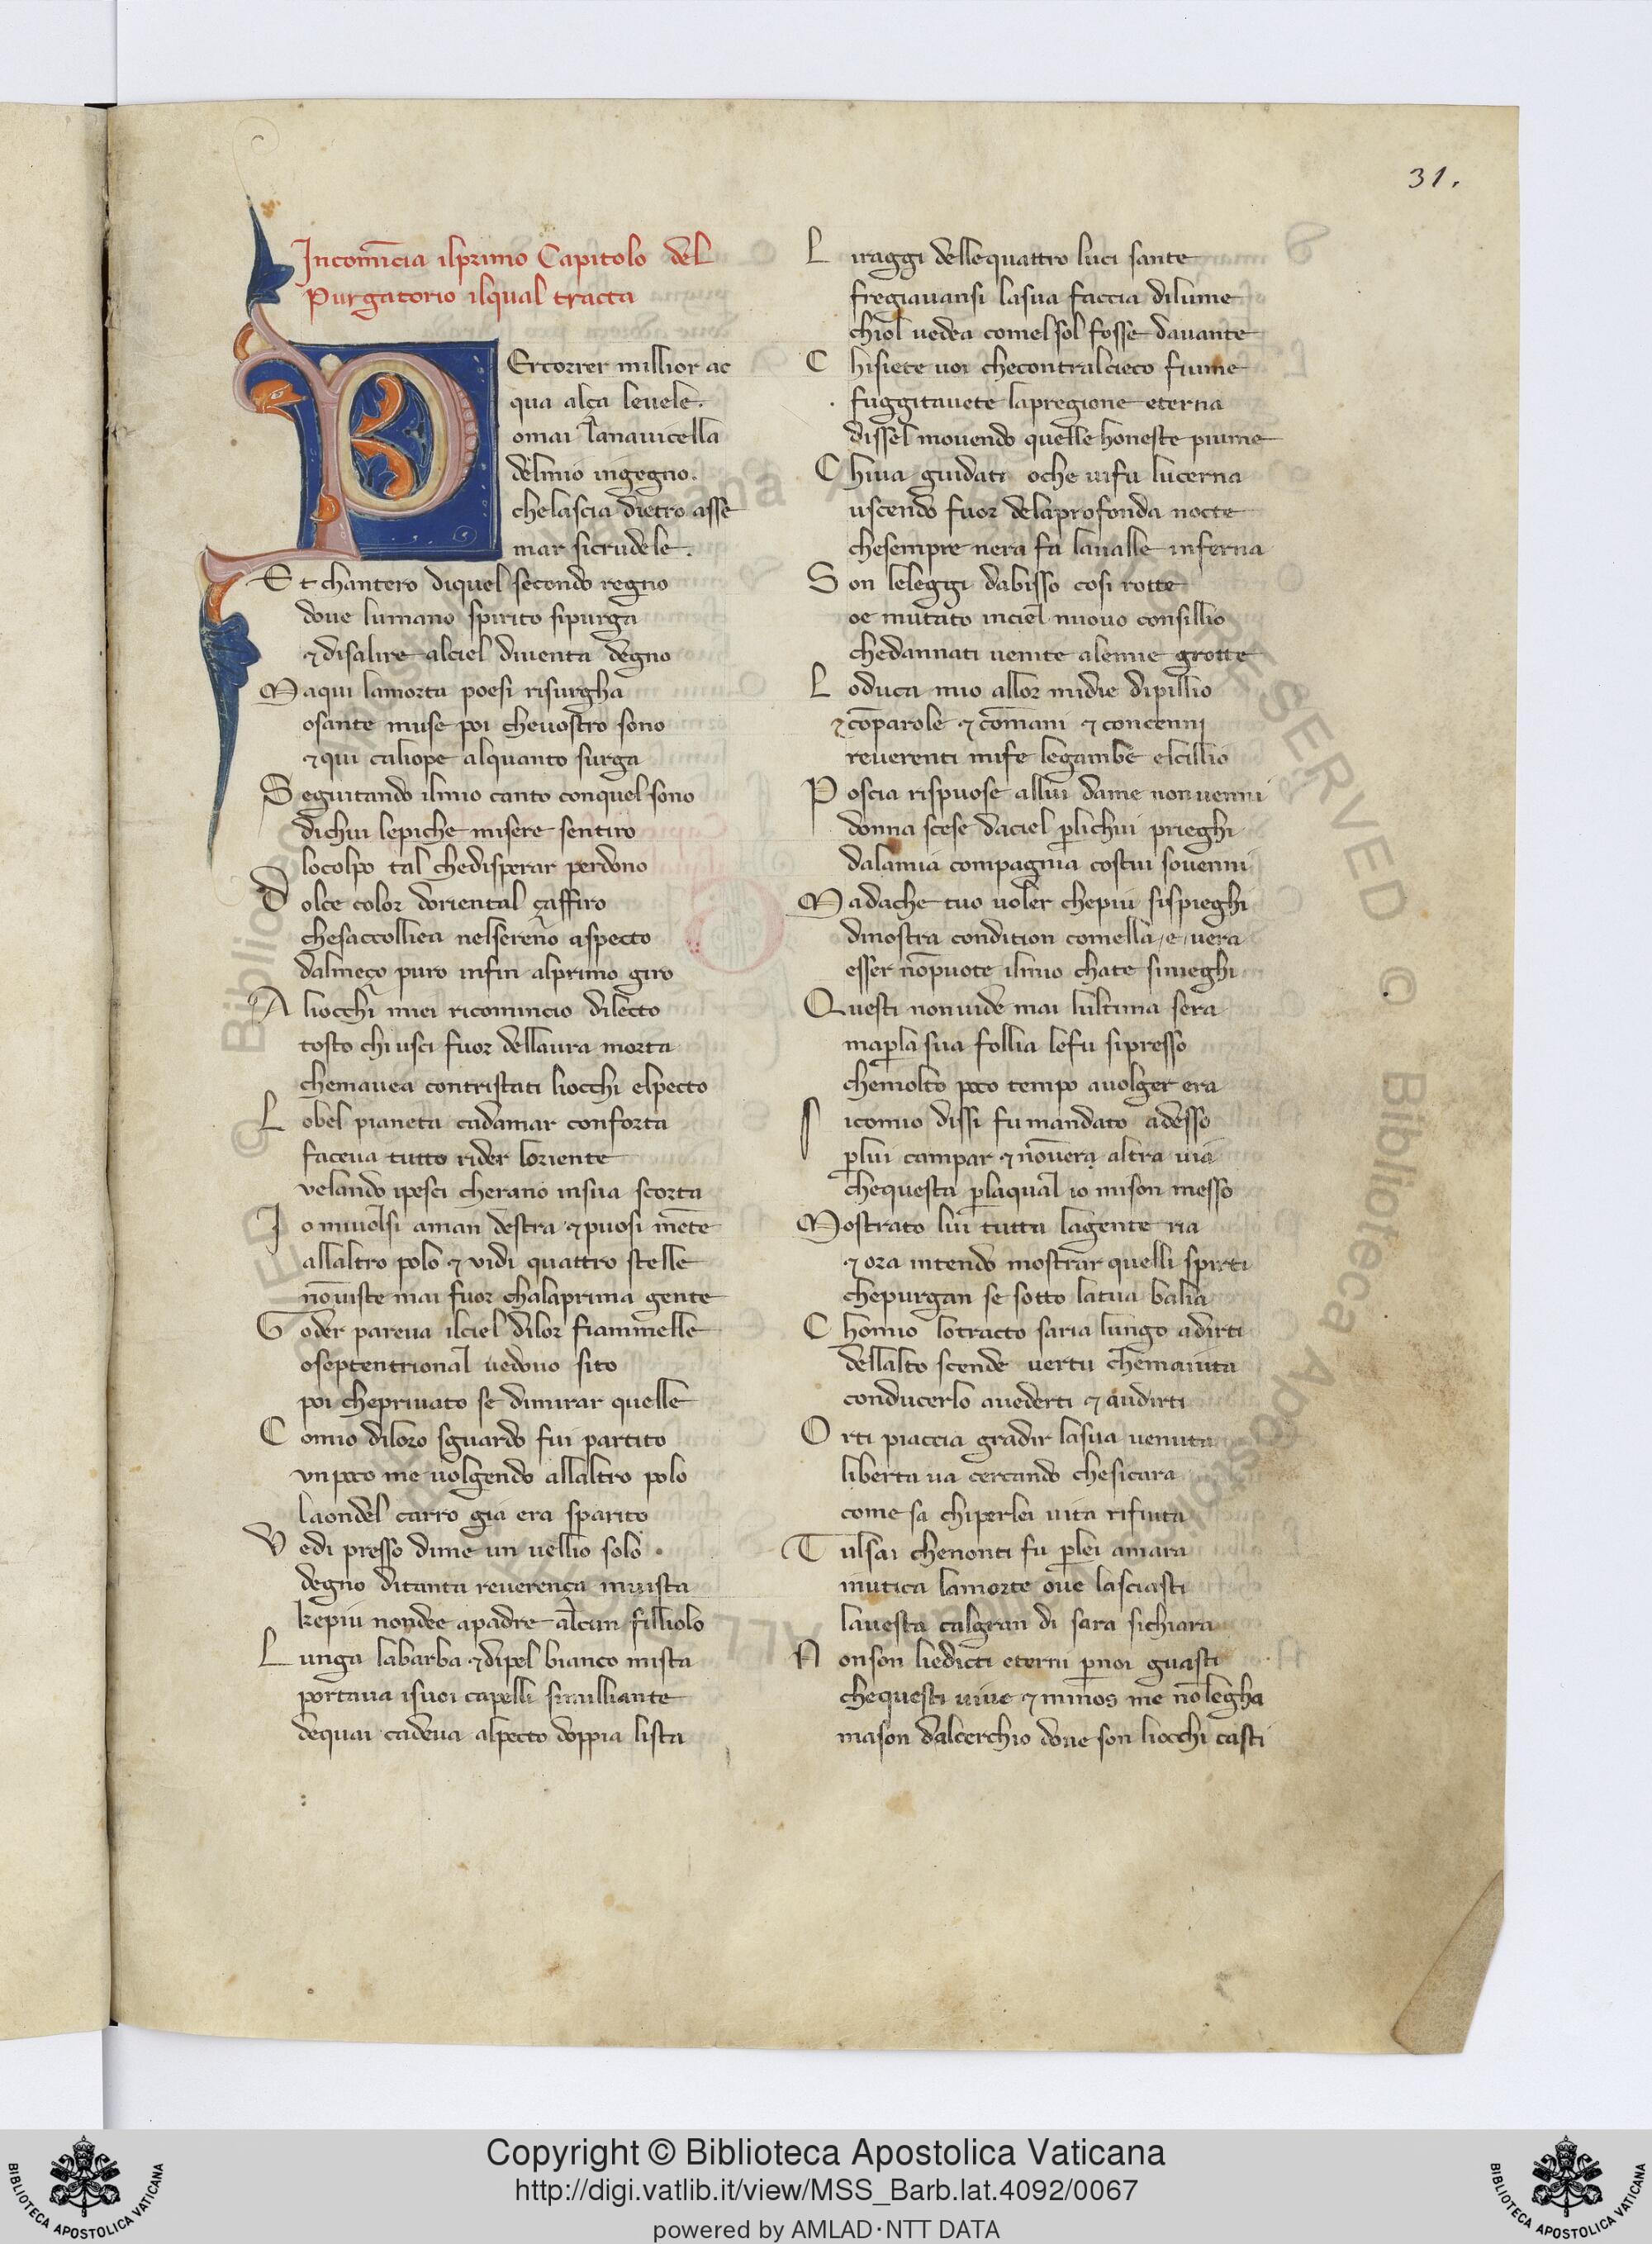 31.
Incomīcia ilprimo Capitolo del
Purgatorio ilqual tracta
PErcorrer millior ac
qua alça levele.
omai lanavicella
delmio ingegno.
chelascia dietro asse
mar sicrudele.
Et chantero diquel secondo regno
dove lumano spirito sipurga
⁊ disalire alciel diventa degno
Maqui lamorta poesi risurgha
osante muse poi chevostro sono
⁊ qui caliope alquanto surga
Seguitando ilmio canto conquel sono
dichui lepiche misere sentiro
locolpo tal chedisperar perdono
Dolce color doriental çaffiro
chesaccolliea nelsereno aspecto
dalmeço puro infin alprimo giro
Aliocchi miei ricomincio dilecto
tosto chi usci fuor dellaura morta
chemavea contristati liocchi elpecto
Lobel pianeta cadamar conforta
faceva tutto rider loriente
velando ipesci cherano insua scorta
Io mivolsi aman destra ⁊ puosi mēte
allaltro polo ⁊ vidi quattro stelle
nōviste mai fuor chalaprima gente
Goder pareva ilciel dilor fiammelle
oseptentrional vedovo sito
poi cheprivato se dimirar quelle
Comio diloro sguardo fui partito
vn poco me volgendo allaltro polo
laondel carro gia era sparito
Vedi presso dime un vellio solo
degno ditanta reverença invista
kepiu nondee apadre alcun filliolo
Lunga labarba ⁊ dipel bianco mista
portava isuoi capelli simlliante
dequai cadeva alpecto doppia lista
Liraggi dellequattro luci sante
fregiavansi lasua faccia dilume
chiol vedea comel sol fosse davante
Chisiete voi checontralcieco fiume
fuggitavete lapregione eterna
dissel movendo quelle honeste piume
Chiva guidati oche vifu lucerna
uscendo fuor delaprofonda nocte
chesempre nera fa lavalle inferna
Son leleggi dabisso cosi rotte
oe mutato inciel nuovo consillio
chedannati venite alemie grotte
Loduca mio allor midie dipillio
⁊ cōparole ⁊ cōmani ⁊ concenni
reverenti mife legambe elcillio
Poscia rispuose allui dame nonvenni
donna scese daciel p̲lichui prieghi
dalamia compagnia costui sovenni
Madache tuo voler chepiu sispieghi
dinostra condition comella e vera
esser nōpuote ilmio chate simieghi
Questi nonvide mai lultima sera
map̲la sua follia lefu sipresso
chemolto poco tempo avolger era
Sicomio dissi fu mandato adesso
p̲lui campar ⁊ nōvera altra via
chequesta p̲laqual io mison messo
Mostrato lui tutta lagente ria
⁊ ora intendo mostrar quelli spirti
chepurgan se sotto latua balia
Chomio lotracto saria lungo adirti
dellalto scende vertu chemaiuta
conducerlo avederti ⁊ audirti
Orti piaccia gradir lasua venuta
liberta va cercando chesicara
come sa chiperlei vita rifiuta
Tulsai chenonti fu p̲lei amara
inutica lamorte ove lasciasti
lavesta calgran di sara sichiara
Nonson liedicti eterni p̲noi guasti
chequesti vive ⁊ minos me nōlegha
mason dalcerchio dove son liocchi casti
Copyright © Biblioteca Apostolica Vaticana
http://digi.vatlib.it/view/MSS_Barb.lat.4092/0067
powered by AMLAD·NTT DATA
BIBLIOTECA APOSTOLICA VATICANA
BIBLIOTECA APOSTOLICA VATICANA